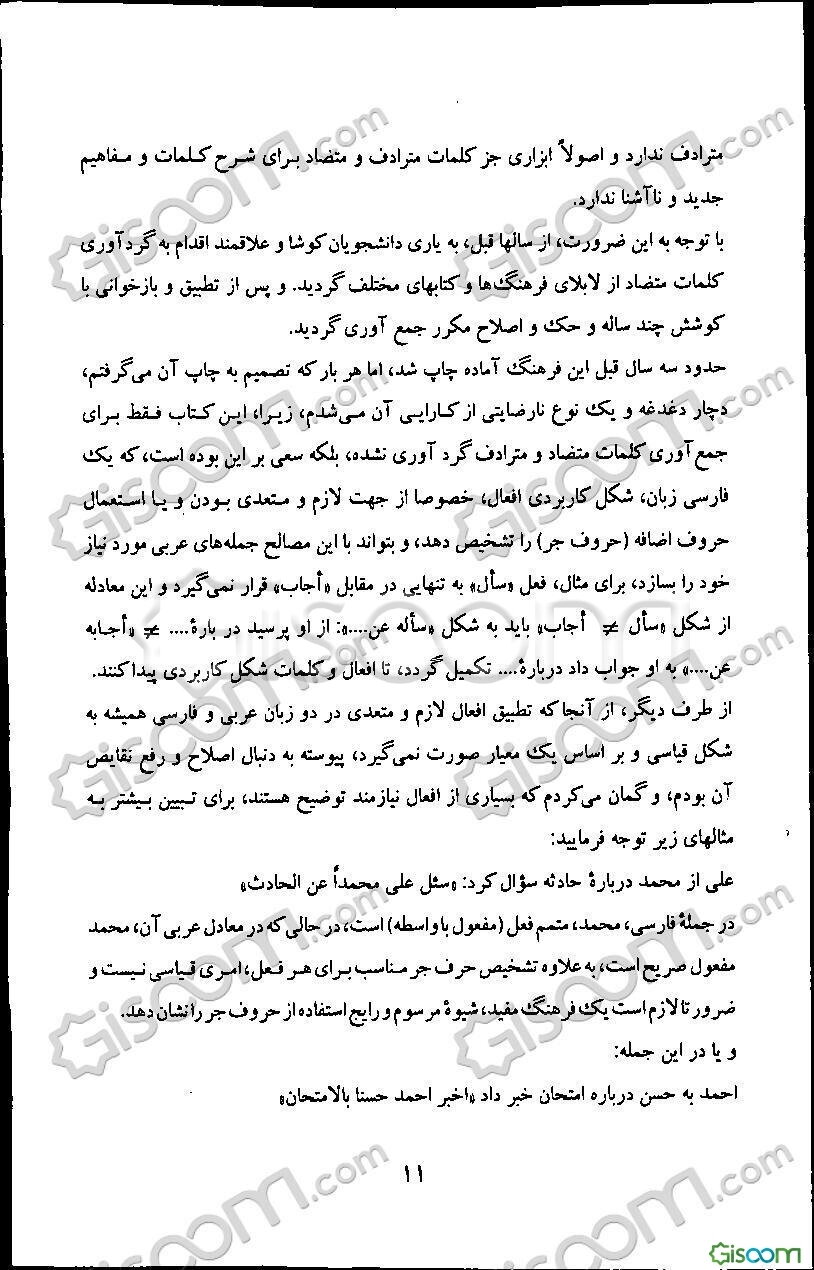 مترادف ندارد و اصولاً ابزاری جز کلمات مترادف و متضاد برای شرح کلمات و مفاهیم
جدید و ناآشنا ندارد.
با توجه به این ضرورت، از سالها قبل، به یاری دانشجویان کوشا و علاقمند اقدام به گردآوری
کلمات متضاد از لابلای فرهنگ‌ها و کتابهای مختلف گردید. و پس از تطبیق و بازخوانی با
کوشش چند ساله و حک و اصلاح مکرر جمع آوری گردید.
حدود سه سال قبل این فرهنگ آماده چاپ شد، اما هر بار که تصمیم به چاپ آن می‌گرفتم،
دچار دغدغه و یک نوع نارضایتی از کارایی آن می‌شدم، زیرا، این کتاب فقط برای
جمع‌آوری کلمات متضاد و مترادف گرد آوری نشده، بلکه سعی بر این بوده است، که یک
فارسی زبان، شکل کاربردی افعال، خصوصا از جهت لازم و متعدی بودن و یا استعمال
حروف اضافه (حروف جر) را تشخیص دهد، و بتواند با این مصالح جمله‌های عربی مورد نیاز
خود را بسازد، برای مثال، فعل «سأل» به تنهایی در مقابل «أجاب» قرار نمی‌گیرد و این معادله
از شکل «سأل ≠ أجاب» باید به شکل «سأله عن....»: از او پرسید در بارهٔ.... ≠ «أجابه
عن....» به او جواب داد دربارهٔ.... تکمیل گردد، تا افعال و کلمات شکل کاربردی پیدا کنند.
از طرف دیگر، از آنجا که تطبیق افعال لازم و متعدی در دو زبان عربی و فارسی همیشه به
شکل قیاسی و بر اساس یک معیار صورت نمی‌گیرد، پیوسته به دنبال اصلاح و رفع نقایص
آن بودم، و گمان می‌کردم که بسیاری از افعال نیازمند توضیح هستند، برای تبیین بیشتر به
مثالهای زیر توجه فرمایید:
علی از محمد دربارهٔ حادثه سؤال کرد: «سئل علی محمداً عن الحادث»
در جملهٔ فارسی، محمد، متمم فعل (مفعول با واسطه) است، در حالی‌که در معادل عربی آن، محمد
مفعول صریح است، به علاوه تشخیص حرف جر مناسب برای هر فعل، امری قیاسی نیست و
ضرورتا لازم است یک فرهنگ مفید، شیوهٔ مرسوم و رایج استفاده از حروف جر را نشان دهد.
و یا در این جمله:
احمد به حسن درباره امتحان خبر داد «اخبر احمد حسنا بالامتحان»
۱۱
Gisoom